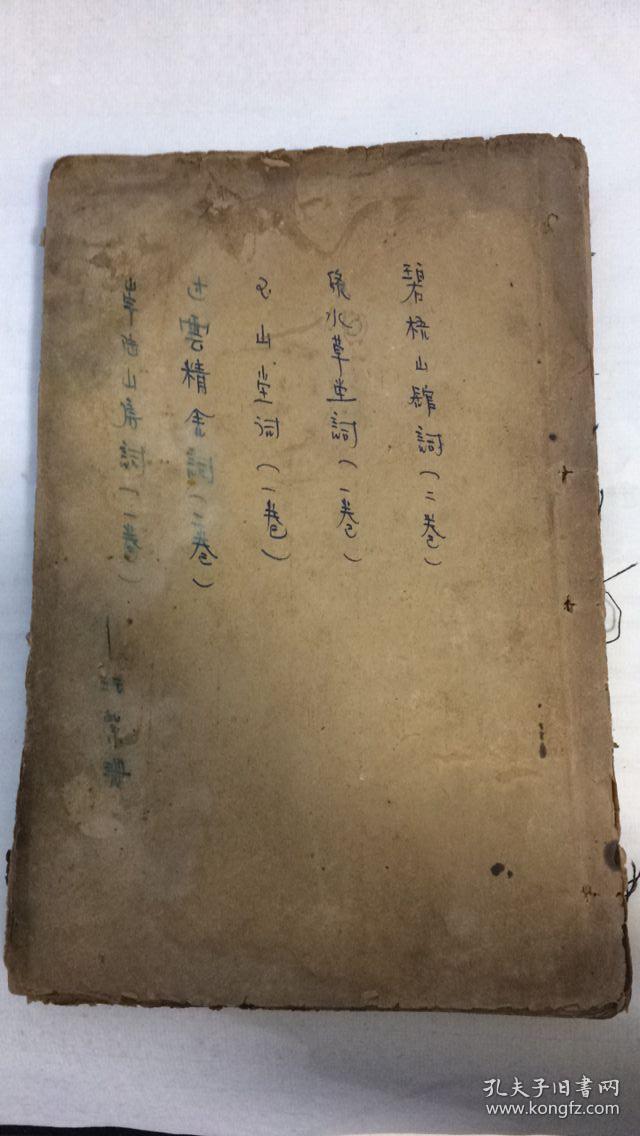 碧梧山館詞(二卷)
水草堂詞(一卷)
山堂词(一卷)
过雲精舍詞(二卷)
山房詞(一卷)
孔夫子旧书网
www.kongfz.com